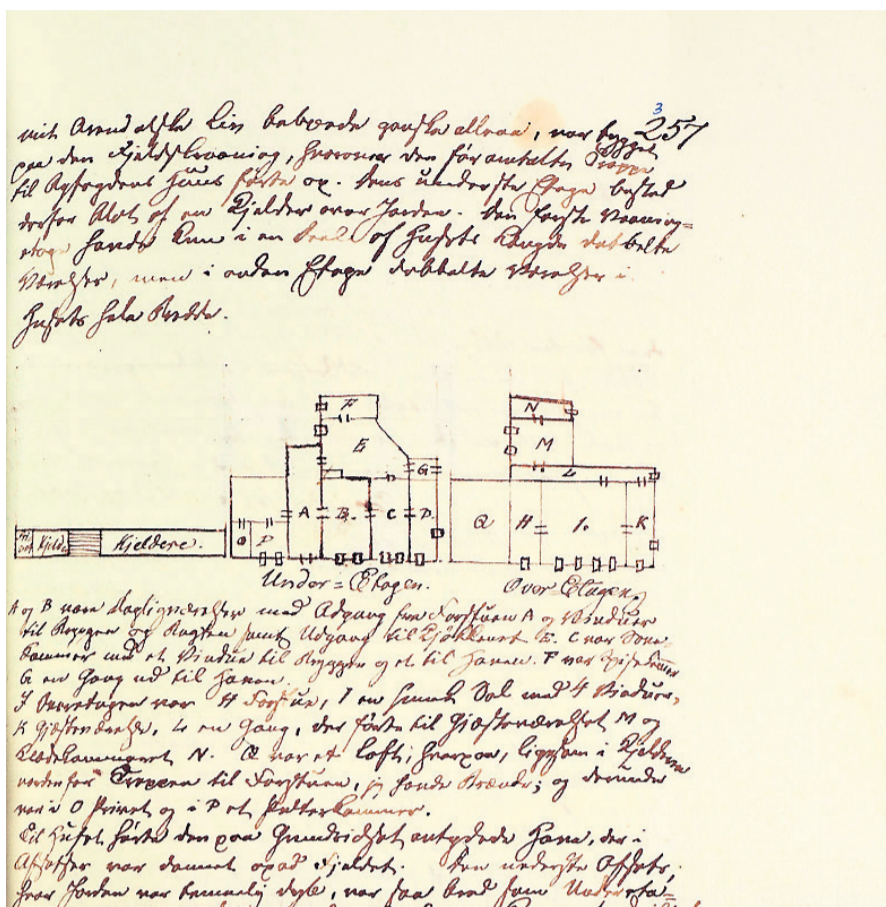 3
257
mit Arendalske Liv beboede ganske allene, var bygget
paa den Fjeldskraaning, hvorover den før omtalte Trappe
til Byfogdens Huus førte op. Dens underste Etage bestod
derfor blot af en Kjelder over Jorden. Den første Vaanings=
etage havde kun i en Deel af Husets Længde dobbelte
Værelser, men i anden Etage dobbelte Værelser i
Husets hele Bredde.
F
N
E
M
G
L
A
B.
C
D.
Q
H
I.
K
O
P
Kjeld
Kjeldere.
Under=Etagen.
Over Etagen,
A og B vare Dagligværelser med Adgang fra Forstuen A og Vinduer
til Bryggen og Bugten samt Udgang til Kjøkkenet E. C var Sove
kammer med et Vindue til Bryggen og et til Haven. F var Spisekammer
G en Gang ud til Haven.
I Overetagen var H Forstue, I en smuk Sal med 4 Vinduer,
K Gjæsteværelse, L en Gang, der førte til Gjæsteværelset M og
Klædekammeret N. Q var et Loft, hvorpaa, ligesom i Kjelderen
nedenfor Trappen til Forstuen, jeg havde Brænde; og derunder
var i O Privet og i P et Pulterkammer.
Til Huset hørte den paa Grundridset antydede Have, der i
Afsatser var dannet opad Fjeldet. Den nederste Afsats,
hvor Jorden var temmelig dyb, var saa bred som